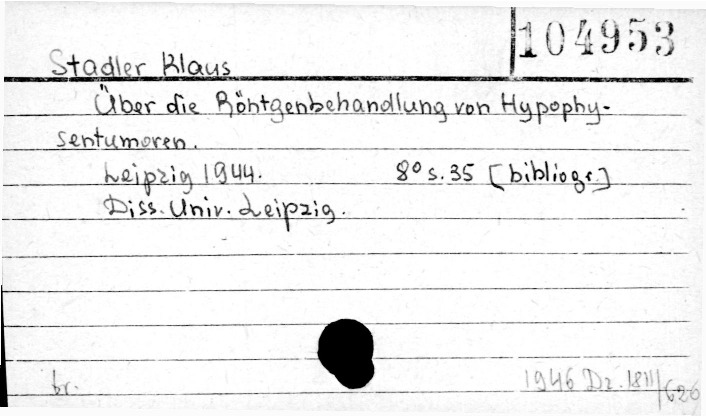 104953
Stadler Klaus
Über die Röntgenbehandlung von Hypophy-
sentumoren.
Leipzig 1944. 8° s. 35 [bibliogr.]
Diss. Univ. Leipzig.
br. 1946 Dz. 18III/620